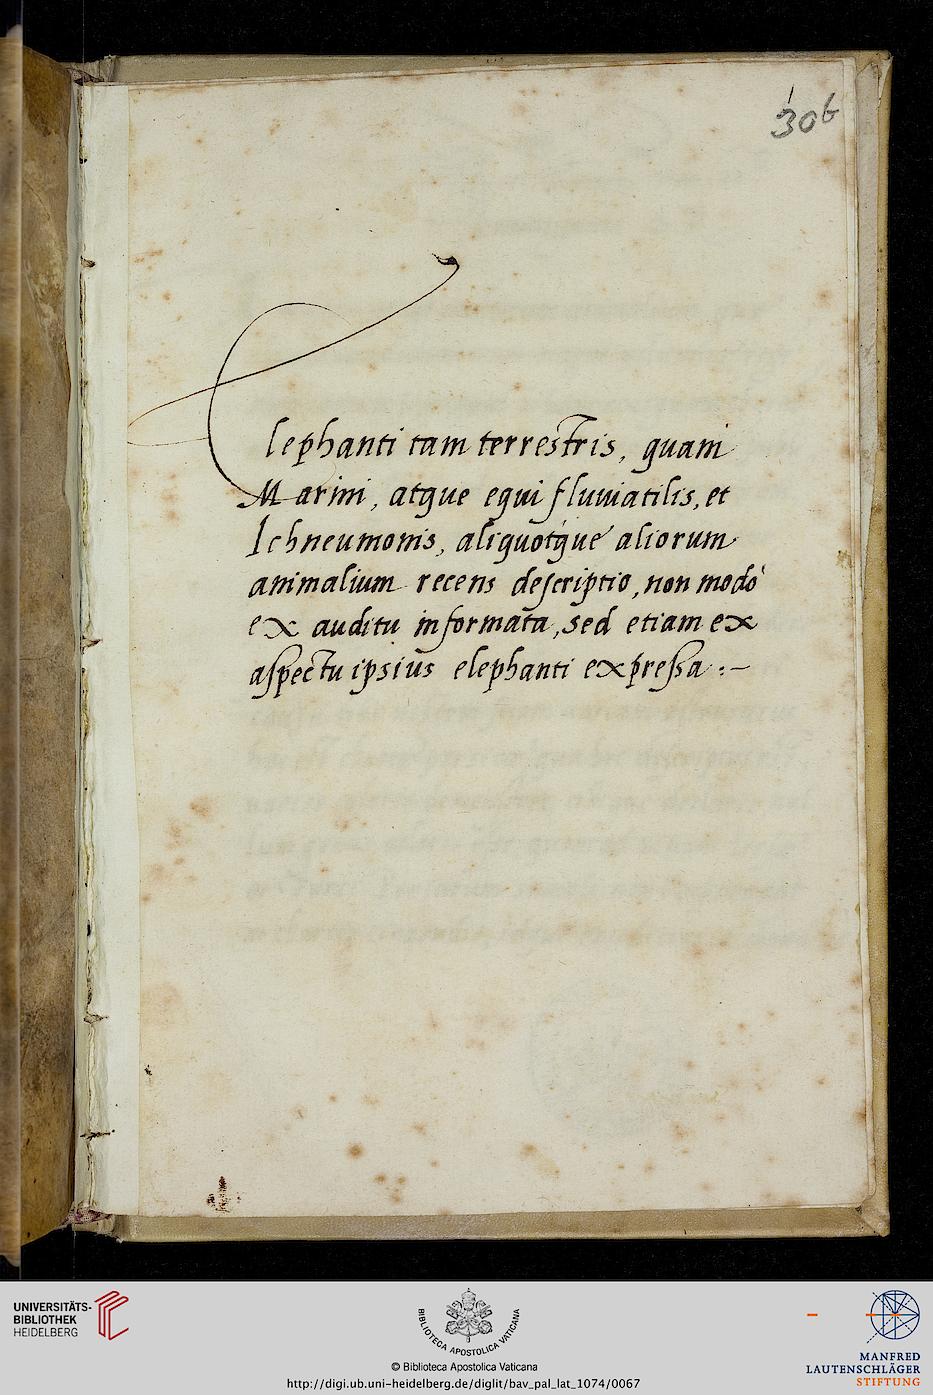 30b
Elephanti tam terrestris, quam
Marini, atque equi fluviatilis, et
Ichneumonis, aliquotque aliorum
animalium recens descriptio, non modò
ex auditu informata, sed etiam ex
aspectu ipsius elephanti expressa :~
UNIVERSITÄTS-
BIBLIOTHEK
HEIDELBERG
BIBLIOTECA APOSTOLICA VATICANA
© Biblioteca Apostolica Vaticana
http://digi.ub.uni-heidelberg.de/diglit/bav_pal_lat_1074/0067
MANFRED
LAUTENSCHLÄGER
STIFTUNG